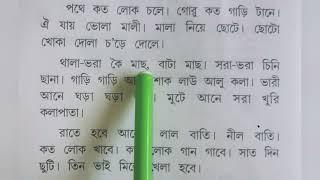 পথে কত লোক চলে। গোরু কত গাড়ি টানে।
ঐ যায় ভোলা মালী। মালা নিয়ে ছোটে। ছোটো
খোকা দোলা চ'ড়ে দোলে।
থালা-ভরা কৈ মাছ, বাটা মাছ। সরা-ভরা চিনি
ছানা। গাড়ি গাড়ি শাক লাউ আলু কলা। ভারী
আনে ঘড়া ঘড়া মুটে আনে সরা খুরি
কলাপাতা।
রাতে হবে লাল বাতি। নীল বাতি।
কত লোক খাবে। লোক গান গাবে। সাত দিন
ছুটি। তিন ভাই খেলা হবে।